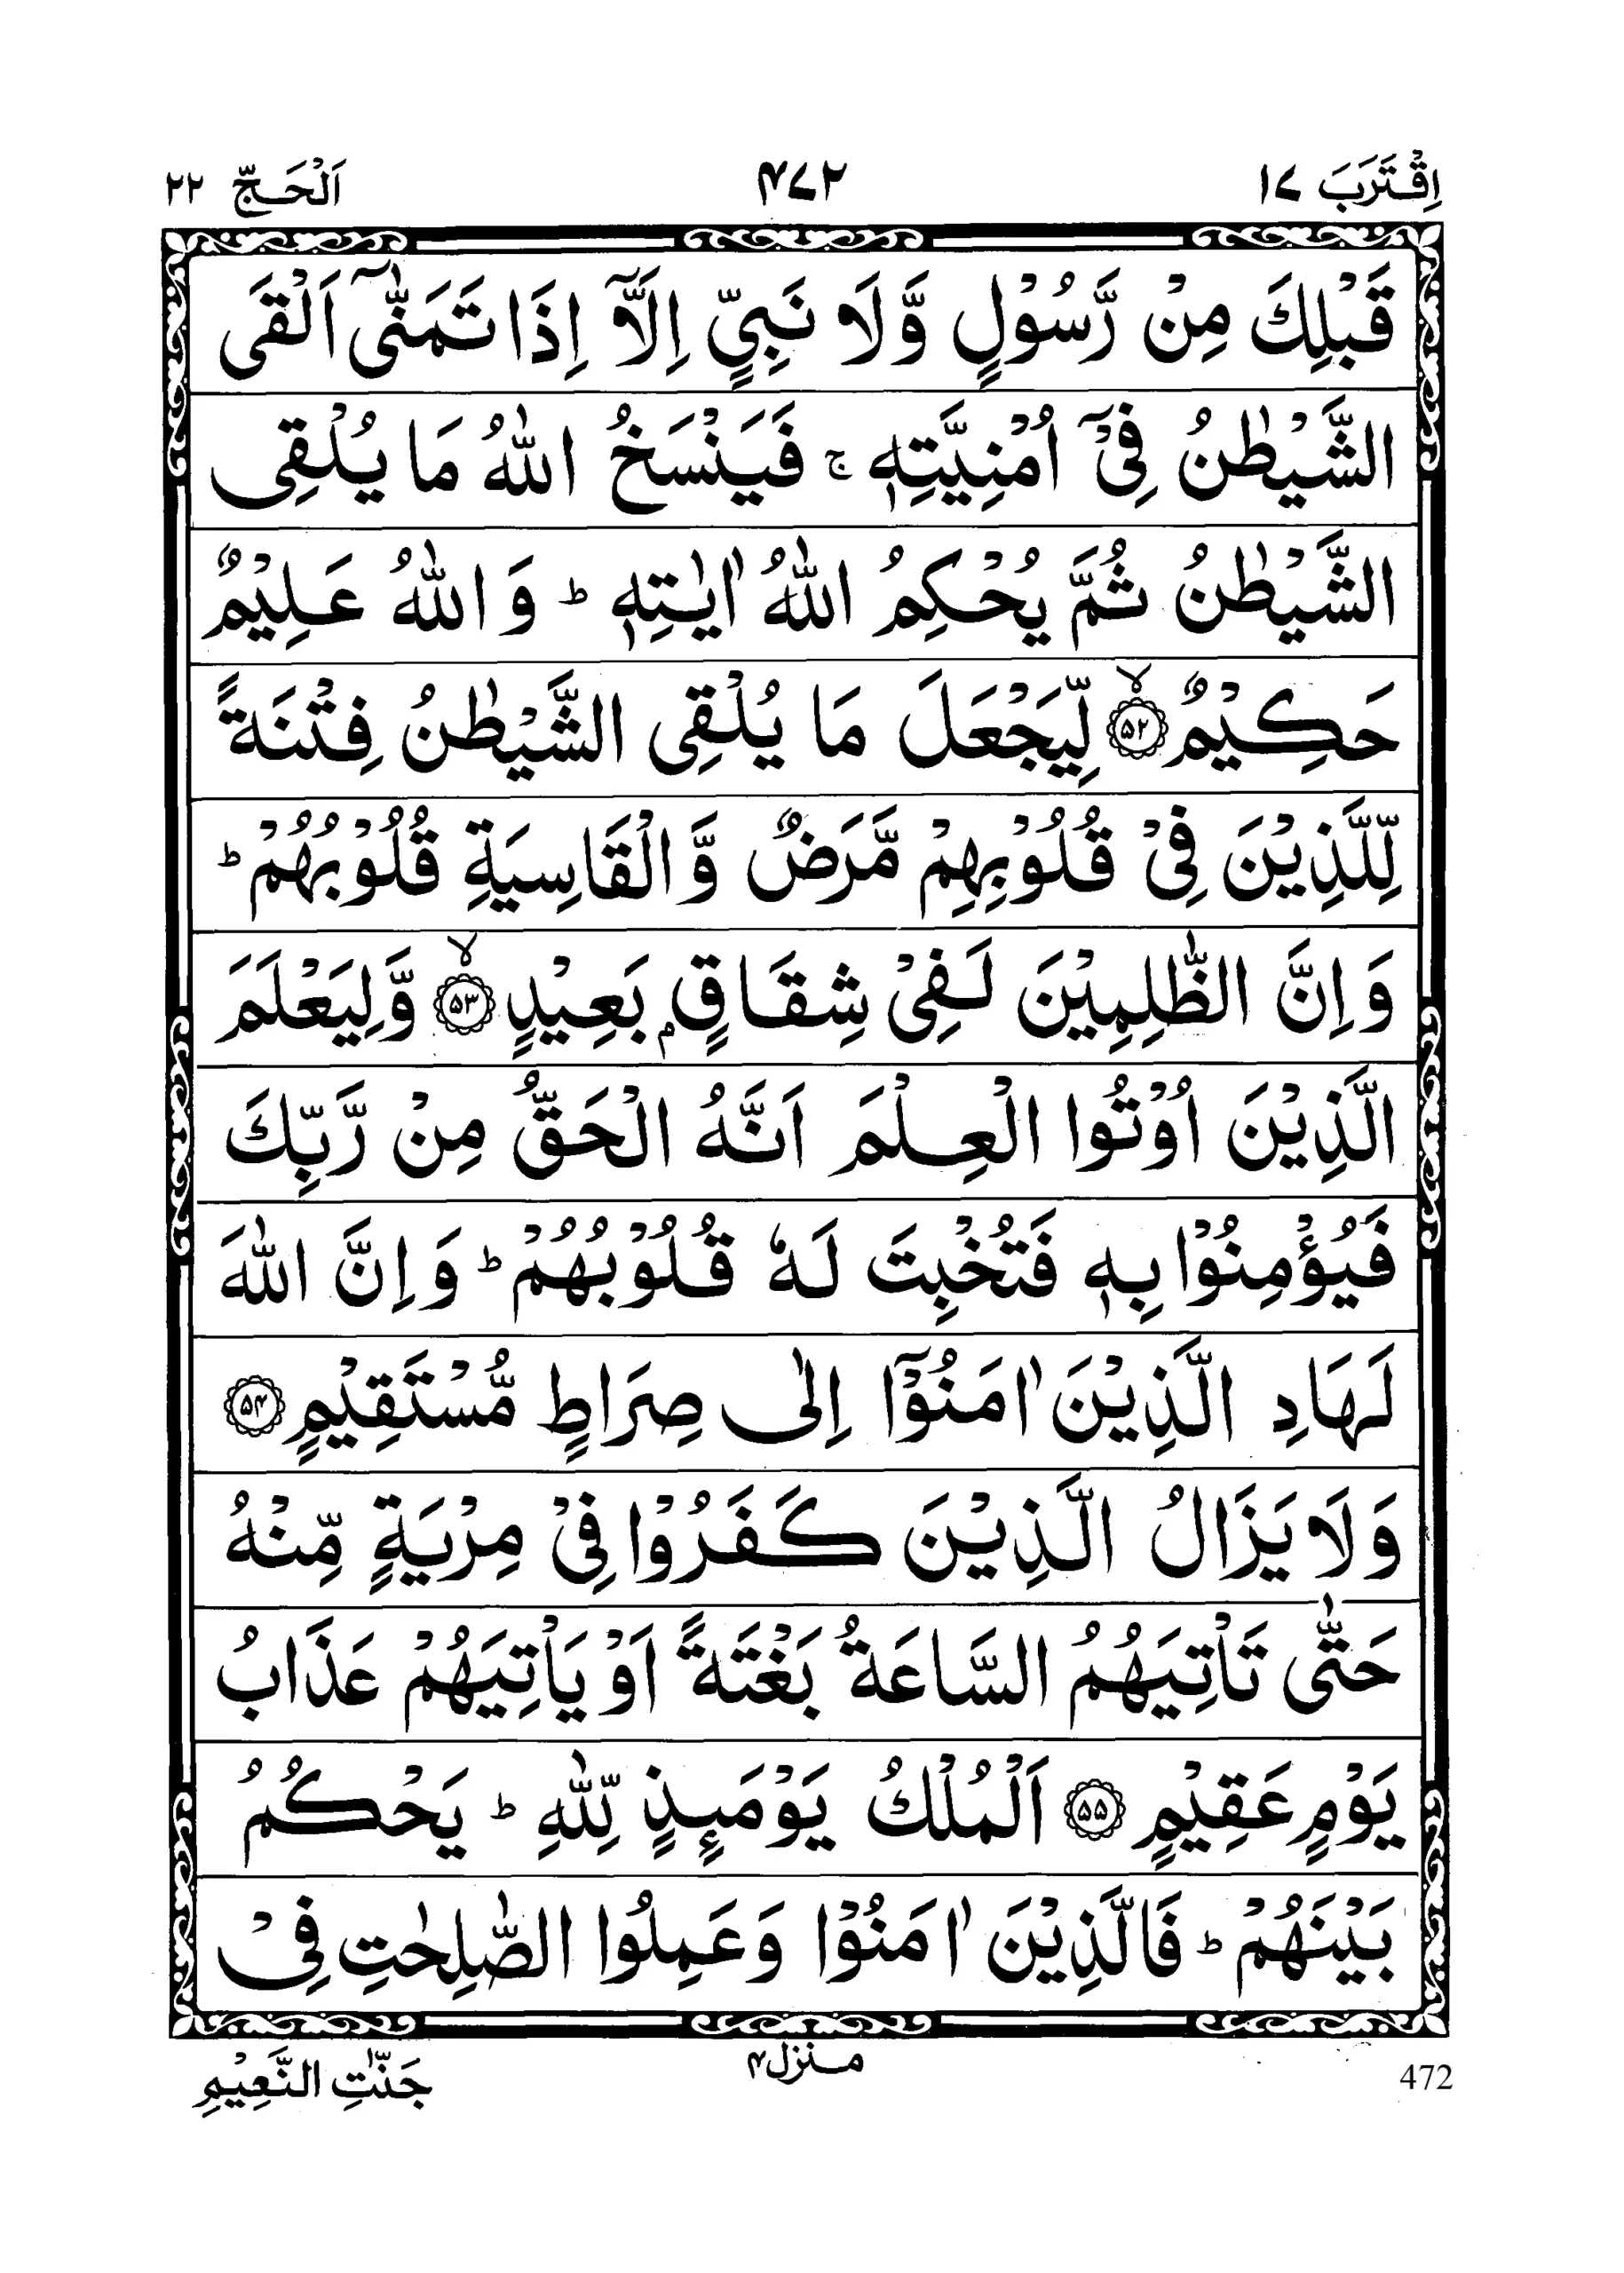 اِقْتَرَبَ ١٧ ٤٧٢ اَلْحَـجّ ٢٢
قَبْلِكَ مِنْ رَّسُوْلٍ وَّلَا نَبِيٍّ اِلَّاۤ اِذَا تَمَنّٰۤى اَلْقَى
الشَّيْطٰنُ فِيْۤ اُمْنِيَّتِهٖ ۚ فَيَنْسَخُ اللّٰهُ مَا يُلْقِى
الشَّيْطٰنُ ثُمَّ يُحْكِمُ اللّٰهُ اٰيٰتِهٖ ؕ وَاللّٰهُ عَلِيْمٌ
حَكِيْمٌ ۙ﴿۵۲﴾ لِّيَجْعَلَ مَا يُلْقِى الشَّيْطٰنُ فِتْنَةً
لِّلَّذِيْنَ فِيْ قُلُوْبِهِمْ مَّرَضٌ وَّالْقَاسِيَةِ قُلُوْبُهُمْ ؕ
وَاِنَّ الظّٰلِمِيْنَ لَفِيْ شِقَاقٍۭ بَعِيْدٍ ۙ﴿۵۳﴾ وَّلِيَعْلَمَ
الَّذِيْنَ اُوْتُوا الْعِلْمَ اَنَّهُ الْحَقُّ مِنْ رَّبِّكَ
فَيُؤْمِنُوْا بِهٖ فَتُخْبِتَ لَهٗ قُلُوْبُهُمْ ؕ وَاِنَّ اللّٰهَ
لَهَادِ الَّذِيْنَ اٰمَنُوْۤا اِلٰى صِرَاطٍ مُّسْتَقِيْمٍ ﴿۵۴﴾
وَلَا يَزَالُ الَّذِيْنَ كَفَرُوْا فِيْ مِرْيَةٍ مِّنْهُ
حَتّٰى تَاْتِيَهُمُ السَّاعَةُ بَغْتَةً اَوْ يَاْتِيَهُمْ عَذَابُ
يَوْمٍ عَقِيْمٍ ﴿۵۵﴾ اَلْمُلْكُ يَوْمَئِذٍ لِّلّٰهِ ؕ يَحْكُمُ
بَيْنَهُمْ ؕ فَالَّذِيْنَ اٰمَنُوْا وَعَمِلُوا الصّٰلِحٰتِ فِيْ
472 منزل۴ جَنّٰتِ النَّعِيْمِ